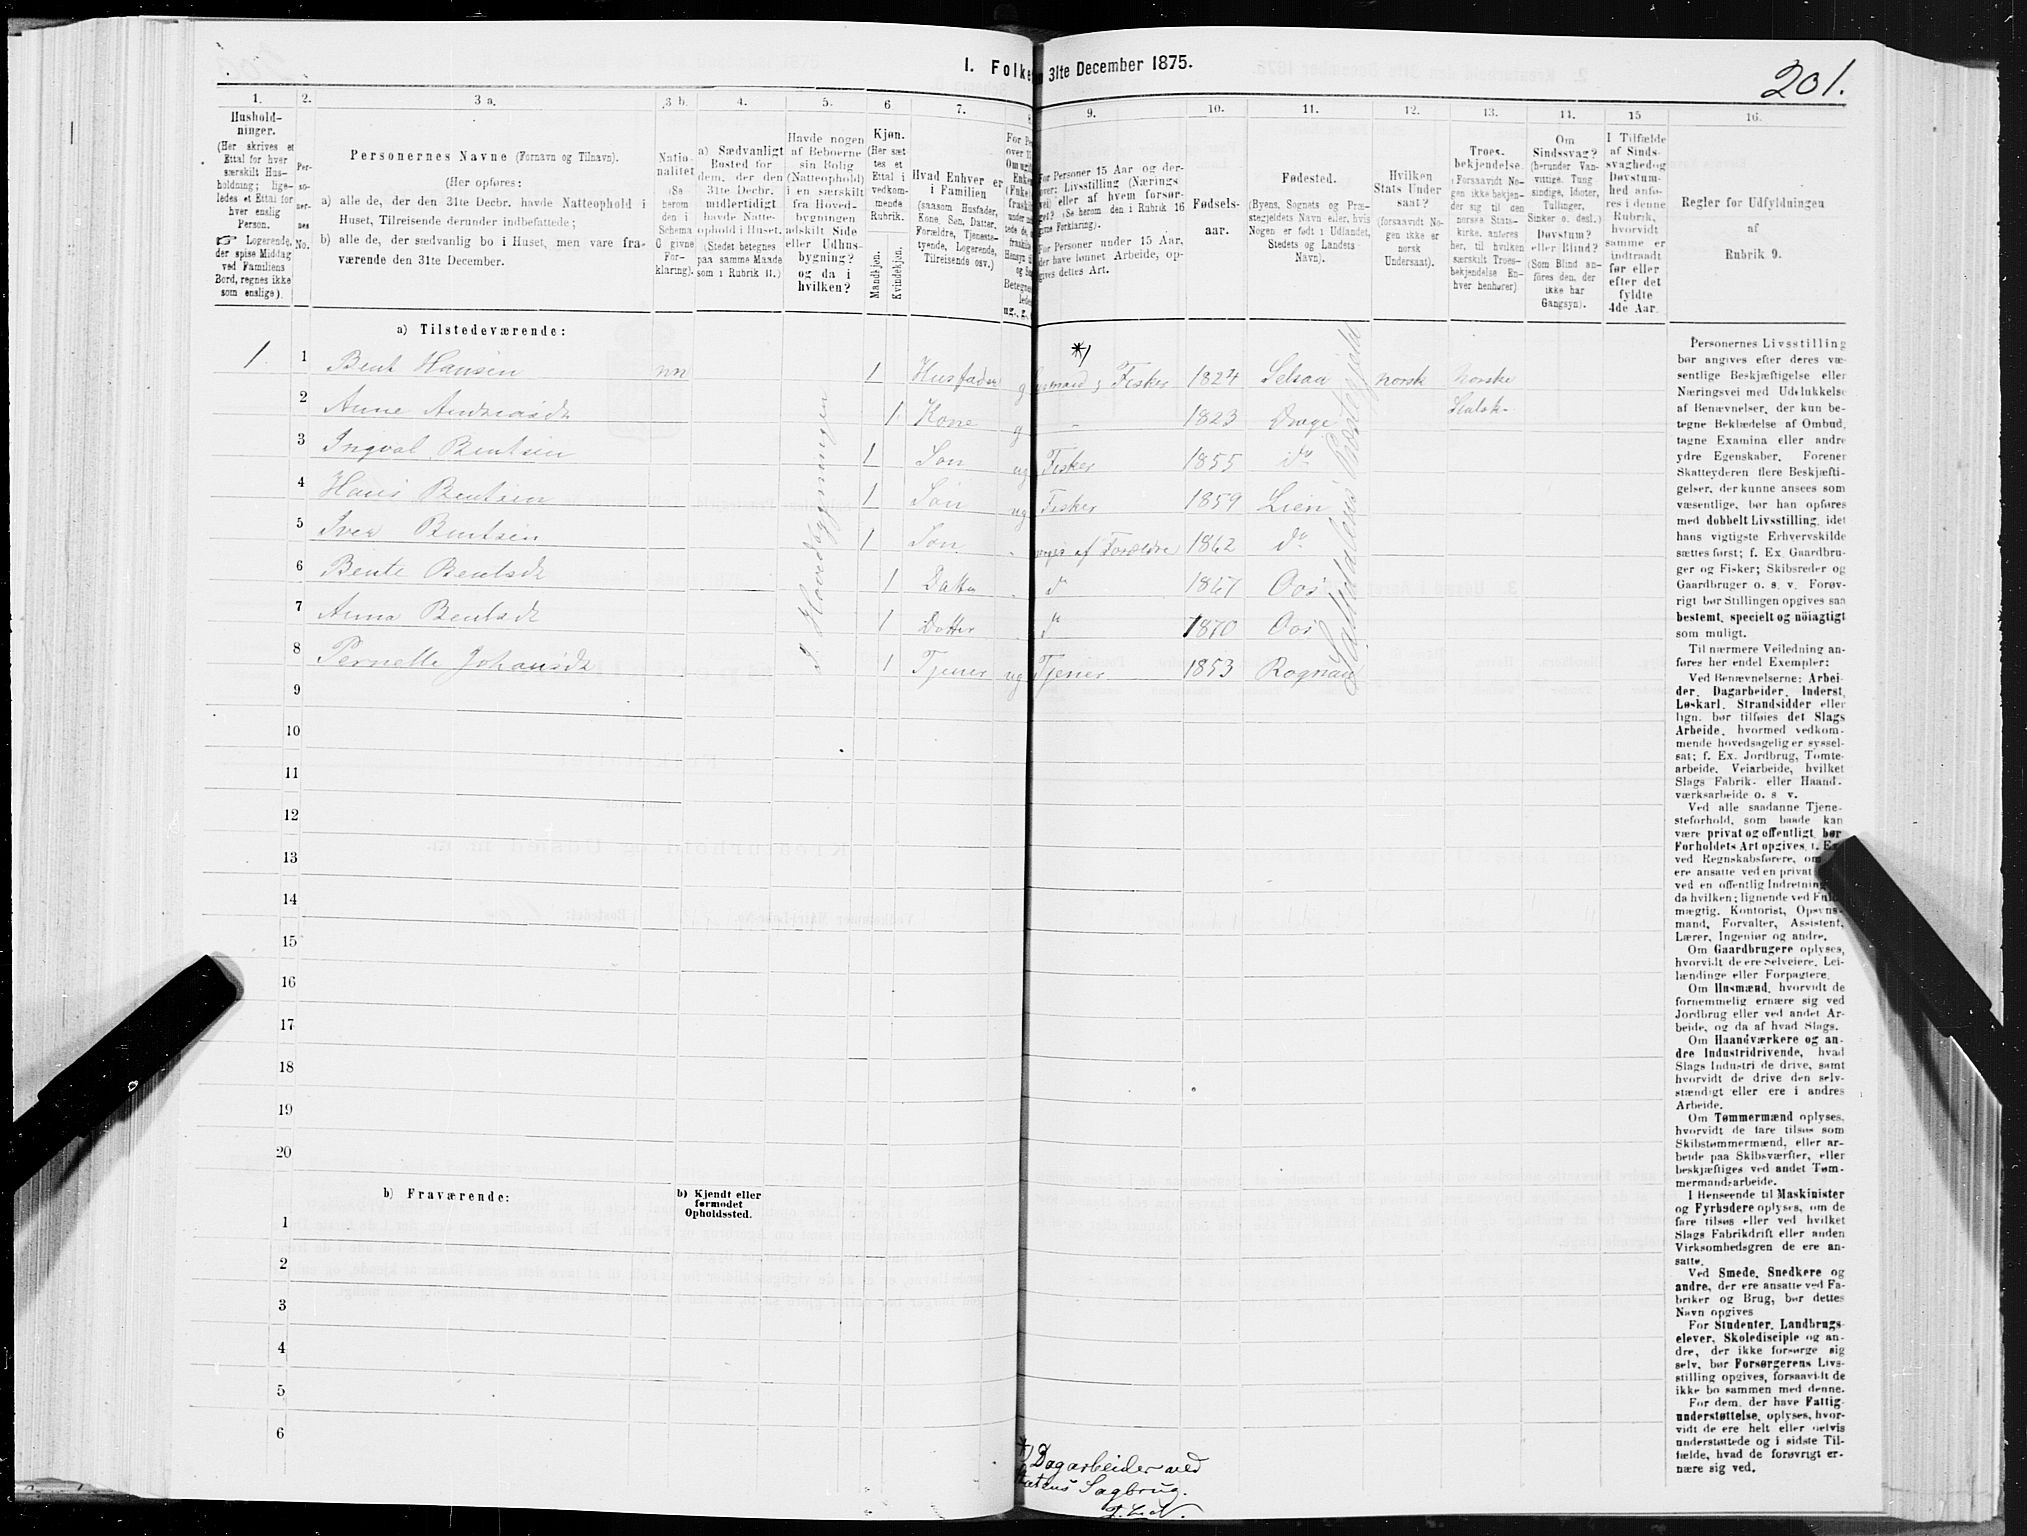 201.
I. Folke
31te December 1875.
1.
Hushold-
ninger.
(Her skrives et
Ettal for hver
særskilt Hus-
holdning; lige-
ledes et Ettal for
hver enslig
Person.
☞ Logerende,
der spise Middag
ved Familiens
Bord, regnes ikke
som enslige).
2.
Per-
so-
ner-
nes
No.
3 a.
Personernes Navne (Fornavn og Tilnavn).
(Her opføres:
a) alle de, der den 31te Decbr. havde Natteophold i
Huset, Tilreisende derunder indbefattede;
b) alle de, der sædvanlig bo i Huset, men vare fra-
værende den 31te December.
3 b.
Natio-
nalitet
(Se
herom
den i
Schema
G givne
For-
klaring).
4.
a) Sædvanligt
Bosted for
dem, der den
31te Decbr.
midlertidigt
havde Natte-
ophold i Huset.
(Stedet betegnes
paa samme Maade
som i Rubrik 11.)
5.
Havde nogen
af Beboerne
sin Bolig
(Natteophold)
i en særskilt
fra Hoved-
bygningen
adskilt Side
eller Udhus-
bygning?
og da i
hvilken?
6
Kjøn.
(Her sæt
tes et
Ettal i
vedkom-
mende
Rubrik.
Mandkjøn.
Kvindekjøn.
7.
Hvad Enhver er
i Familien
(saasom Husfader,
Kone, Søn, Datter,
Forældre, Tjeneste-
tyende, Logerende,
Tilreisende osv.)
9.
For Personer 15 Aar og der-
over: Livsstilling (Nærings
vei) eller af hvem forsør-
get? (Se herom den i Rubrik 16
givne Forklaring).
For Personer under 15 Aar,
der have lønnet Arbeide, op-
gives dettes Art.
10.
Fødsels-
aar.
11.
Fødested.
(Byens, Sognets og Præ-
stegjeldets Navn eller, hvis
Nogen er født i Udlandet,
Stedets og Landets
Navn).
12.
Hvilken
Stats Under
saat?
(forsaavidt No-
gen ikke er
norsk
Undersaat).
13.
Troes-
bekjendelse.
(Forsaavidt No-
gen ikke bekjen-
der sig til den
norske Stats-
kirke, anføres
her, til hvilken
særskilt Troes-
bekjendelse En-
hver henhører)
14.
Om
Sindssvag?
(herunder Van-
vittige, Tung
sindige, Idioter,
Tullinger,
Sinker o. desl.)
Døvstum?
eller Blind?
(Som Blind an-
føres den, der
ikke har
Gangsyn).
15
I Tilfælde
af Sinds-
svaghed og
Døvstum-
hed anfø-
res i denne
Rubrik,
hvorvidt
samme er
indtraadt
før eller
efter det
fyldte
4de Aar.
16.
Regler for Udfyldningen
af
Rubrik 9.
a) Tilstedeværende:
*)
1. 1 Bent Hansen nn 1 Husfader g Fisker 1824 Selsaa norsk Norske
2 Anne Andreasdt 1 Kone g - 1823 Drage Statsk-
3 Ingval Bentsen 1 Søn ug Fisker 1855 do
4 Hans Bentsen 1 Søn ug Fisker 1859 Lien
5 Iver Bentsen 1 Søn - af Forældre 1862 do
6 Bente Bentsdt 1 Datter - do 1867 Oos
7 Anna Bentsdt 1 Datter do 1870 Oos
8 Pernelle Johansdt 1 Tjener ug Tjener 1853 Rognan
I Hovedbygningen
Saltdalens Præstegjeld
9
10
11
12
13
14
15
16
17
18
19
20
b) Fraværende:
b) Kjendt eller
formodet
Opholdssted.
1
2
3
4
5
6
Personernes Livsstilling
bør angives efter deres væ-
sentlige Beskjæftigelse eller
Næringsvei med Udelukkelse
af Benævnelser, der kun be-
tegne Beklædelse af Ombud,
tagne Examina eller andre
ydre Egenskaber. Forener
Skatteyderen flere Beskjæfti-
gelser, der kunne ansees som
væsentlige, bør han opføres
med dobbelt Livsstilling, idet
hans vigtigste Erhvervskilde
sættes først; f. Ex. Gaardbru-
ger og Fisker; Skibsreder og
Gaardbruger o. s. v. Forøv-
rigt bør Stillingen opgives saa
bestemt, specielt og nøiagtigt
som muligt.
Til nærmere Veiledning an-
føres her endel Exempler:
Ved Benævnelserne: Arbei-
der, Dagarbeider, Inderst,
Løskarl, Strandsidder eller
lign. bør tilføies det Slags
Arbeide, hvormed vedkom-
mende hovedsagelig er syssel-
sat; f. Ex. Jordbrug, Tomte-
arbeide, Veiarbeide, hvilket
Slags Fabrik- eller Haand-
værksarbeide o. s v.
Ved alle saadanne Tjene-
steforhold, som baade kan
være privat og offentligt, bør
Forholdets Art opgives, t. Ex.
ved Regnskabsførere, om
ere ansatte ved en privat
ved en offentlig Indretning
da hvilken; lignende ved Fuld
mægtig, Kontorist, Opsyns-
mand, Forvalter, Assistent,
Lærer, Ingeniør og andre.
Om Gaardbrugere oplyses,
hvorvidt de ere Selveiere, Lei-
lændinge eller Forpagtere.
Om Husmænd, hvorvidt de
fornemmelig ernære sig ved
Jordbrug eller ved andet Ar-
beide, og da af hvad Slags.
Om Haandværkere og an-
dre Industridrivende, hvad
Slags Industri de drive, samt
hvorvidt de drive den selv-
stændigt eller ere i andres
Arbeide.
Om Tømmermænd oplyses,
hvorvidt de fare tilsøs som
Skibstømmermænd, eller ar-
beide paa Skibsværfter, eller
beskjæftiges ved andet Tøm-
mermandsarbeide.
I Henseende til Maskinister
og Fyrbødere oplyses, om de
fare tilsøs eller ved hvilket
Slags Fabrikdrift eller anden
Virksomhedsgren de ere an-
satte.
Ved Smede, Snedkere og
andre, der ere ansatte ved Fa-
briker og Brug, bør dettes
Navn opgives
For Studenter, Landbrugs-
elever, Skoledisciple og an-
dre, der ikke forsørge sig
selv, bør Forsørgerens Livs-
stilling opgives, forsaavidt de
ikke bo sammen med denne.
For dem, der have Fattig-
understøttelse, oplyses, hvor-
vidt de ere helt eller delvis
understøttede og i sidste Til-
fælde, hvad de forøvrigt er-
nære sig ved.
*) Dagarbeider ved
Statens Sagbrug.